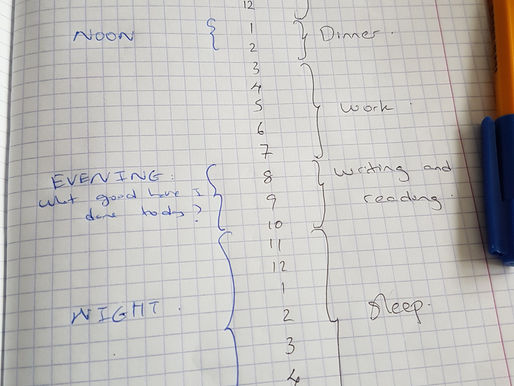 12
NOON { 1 } Dinner.
2
3
4
5 } Work.
6
7
EVENING: 8 } Writing and
What good have I 9 reading.
done today? 10
11
12
1
NIGHT. 2 } Sleep.
3
4